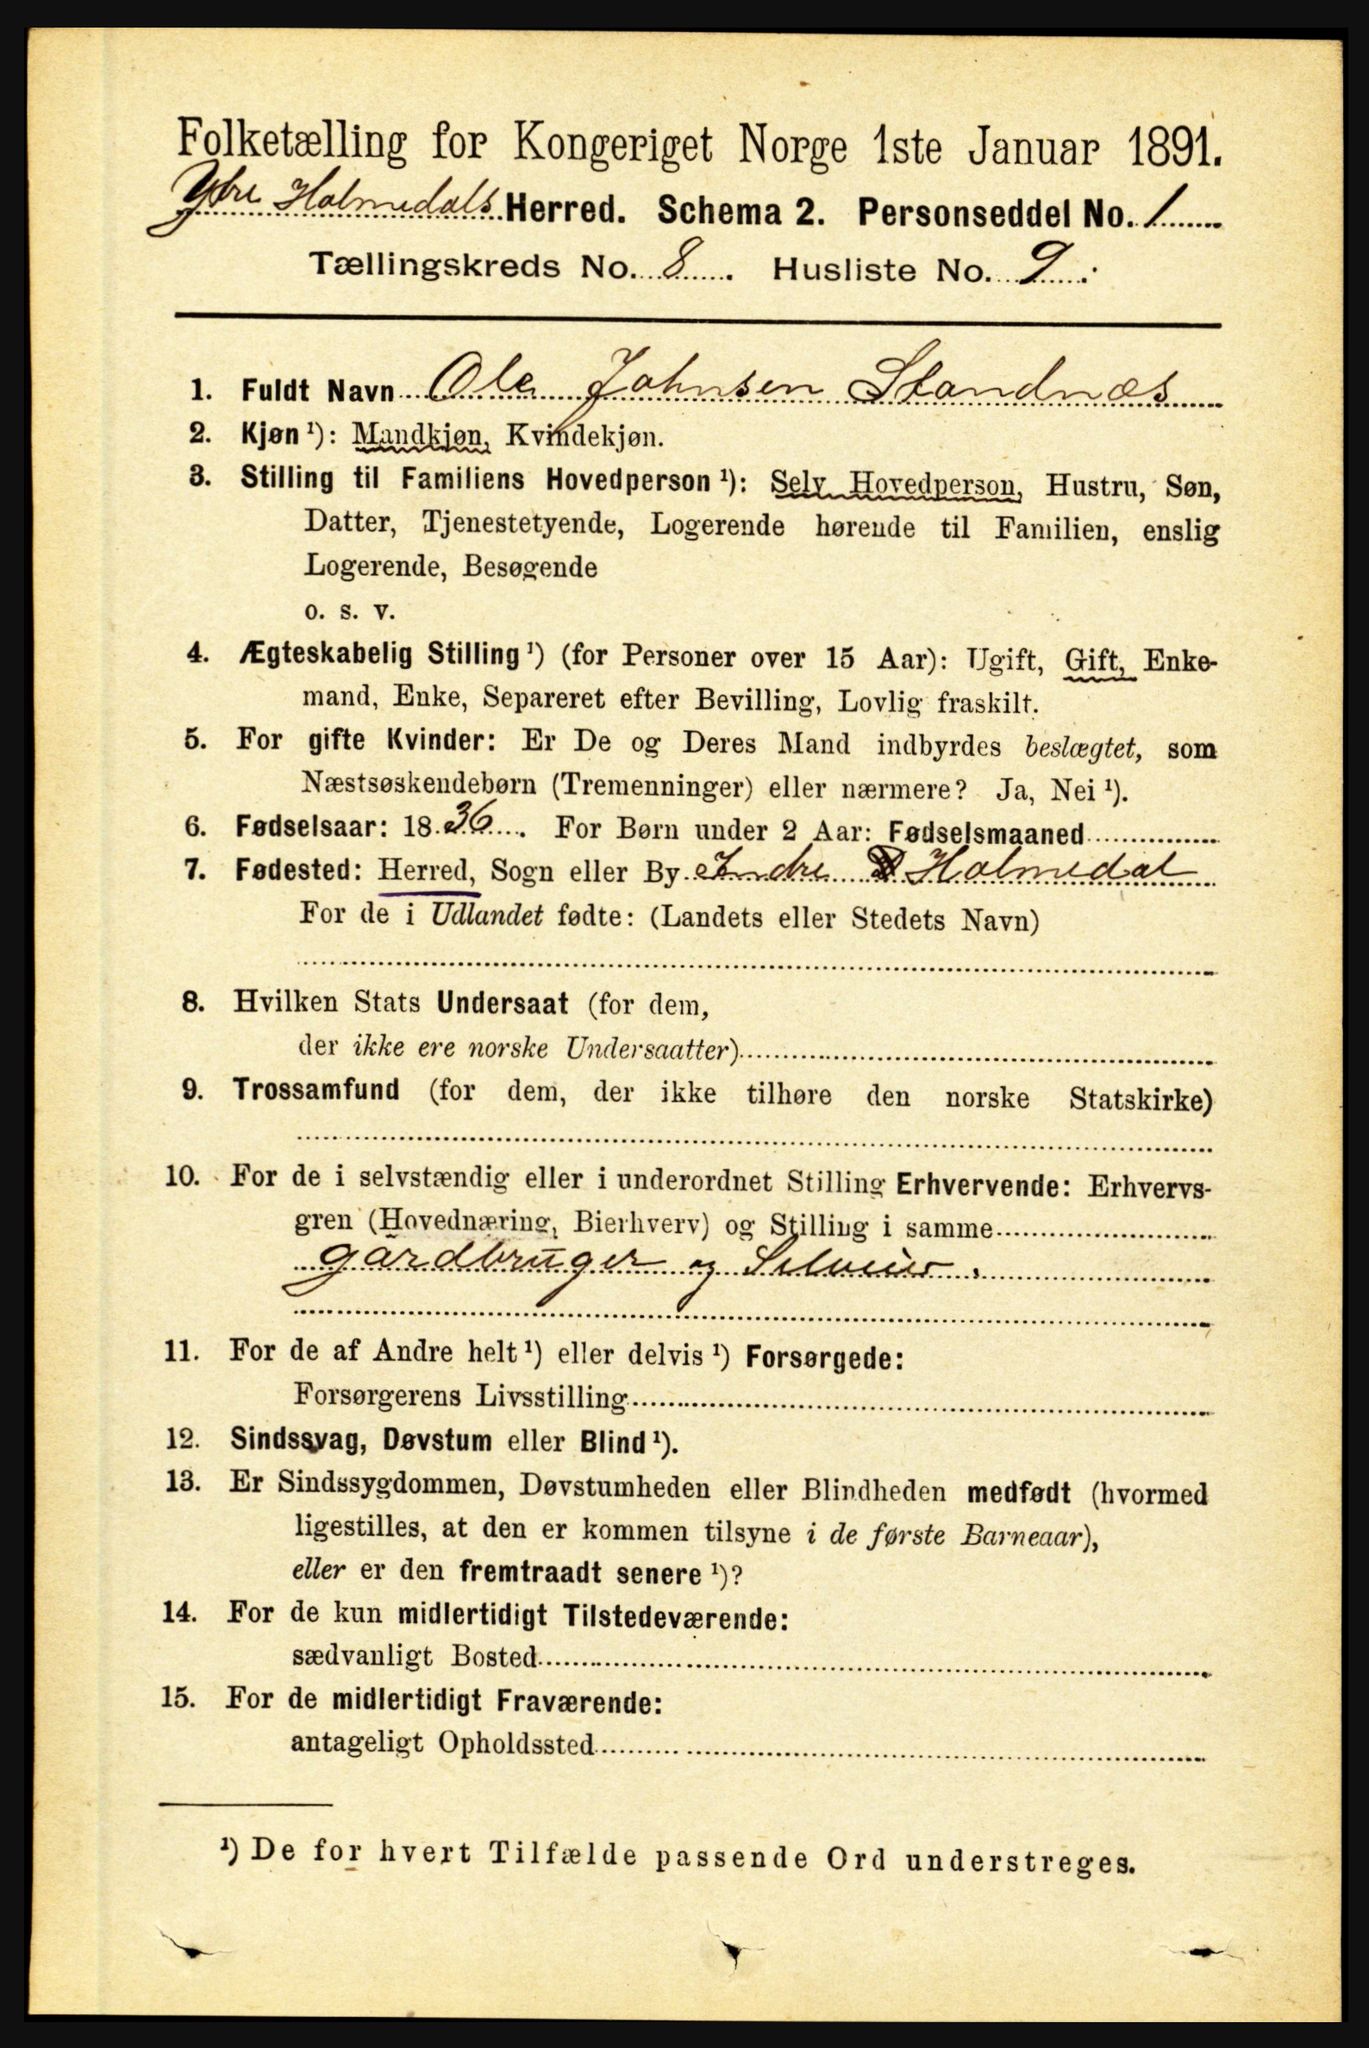 Folketælling for Kongeriget Norge 1ste Januar 1891.
Ytre Holmedals Herred. Schema 2. Personseddel No. 1
Tællingskreds No. 8. Husliste No. 9.
1. Fuldt Navn Ole Johnsen Standnæs
2. Kjøn ¹): Mandkjøn, Kvindekjøn.
3. Stilling til Familiens Hovedperson ¹): Selv Hovedperson, Hustru, Søn,
Datter, Tjenestetyende, Logerende hørende til Familien, enslig
Logerende, Besøgende
o. s. v.
4. Ægteskabelig Stilling ¹) (for Personer over 15 Aar): Ugift, Gift, Enke-
mand, Enke, Separeret efter Bevilling, Lovlig fraskilt.
5. For gifte Kvinder: Er De og Deres Mand indbyrdes beslægtet, som
Næstsøskendebørn (Tremenninger) eller nærmere? Ja, Nei ¹).
6. Fødselsaar: 1836. For Børn under 2 Aar: Fødselsmaaned
7. Fødested: Herred, Sogn eller By Indre Holmedal
For de i Udlandet fødte: (Landets eller Stedets Navn)
8. Hvilken Stats Undersaat (for dem,
der ikke ere norske Undersaatter)
9. Trossamfund (for dem, der ikke tilhøre den norske Statskirke)
10. For de i selvstændig eller i underordnet Stilling Erhvervende: Erhvervs-
gren (Hovednæring, Bierhverv) og Stilling i samme
gardbruger og Selveier.
11. For de af Andre helt ¹) eller delvis ¹) Forsørgede:
Forsørgerens Livsstilling
12. Sindssvag, Døvstum eller Blind ¹).
13. Er Sindssygdommen, Døvstumheden eller Blindheden medfødt (hvormed
ligestilles, at den er kommen tilsyne i de første Barneaar),
eller er den fremtraadt senere ¹)?
14. For de kun midlertidigt Tilstedeværende:
sædvanligt Bosted
15. For de midlertidigt Fraværende:
antageligt Opholdssted
¹) De for hvert Tilfælde passende Ord understreges.